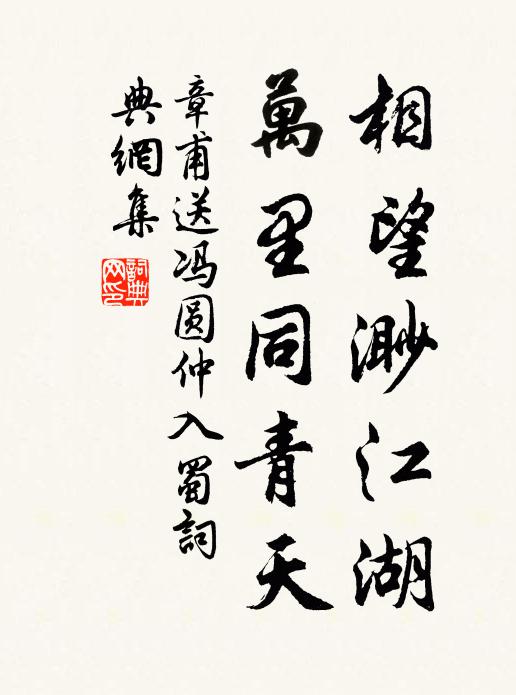 相望渺江湖
萬里同青天
章甫送冯圆仲入蜀詞
典網集
詞典
网印